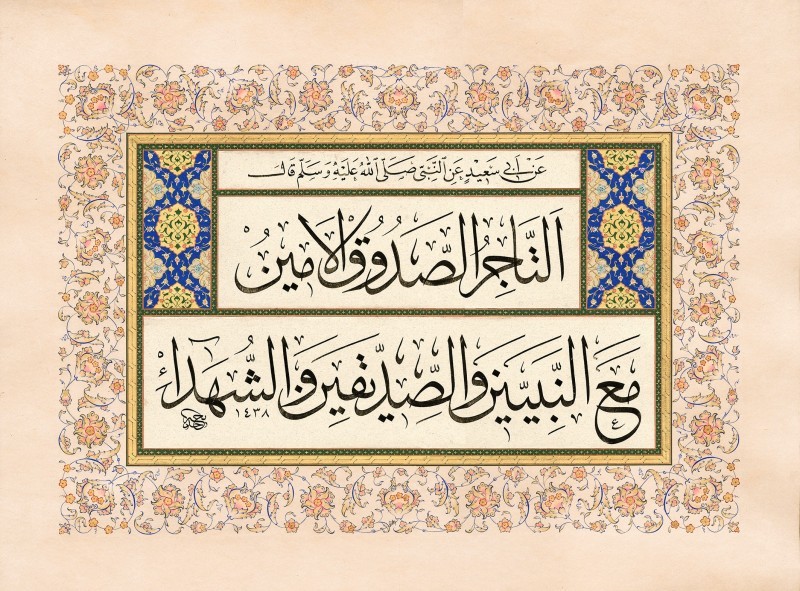 عَنْ أَبِي سَعِيدٍ عَنِ النَّبِيِّ صَلَّى اللهُ عَلَيْهِ وَسَلَّمَ قَالَ
اَلتَّاجِرُ الصَّدُوقُ الْأَمِينُ
مَعَ النَّبِيِّينَ وَالصِّدِّيقِينَ وَالشُّهَدَاءِ
١٤٣٨